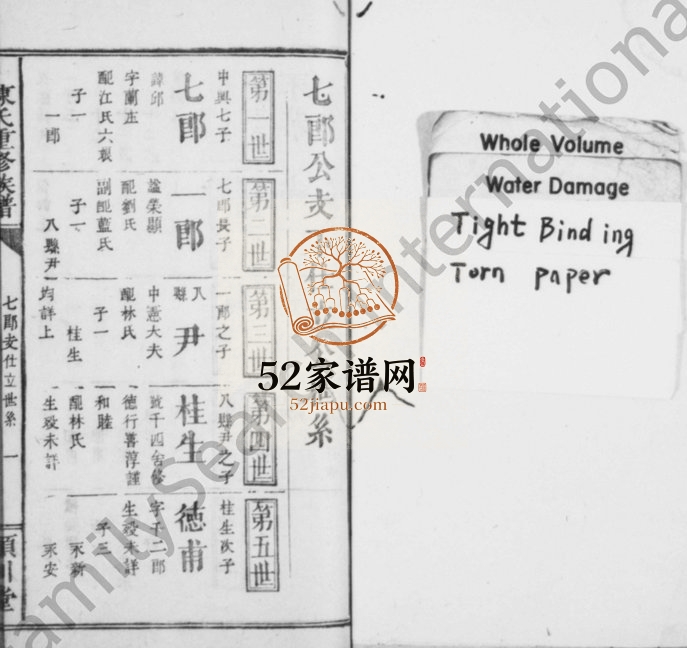 七郎公支
系
第一世
中興七子
七郎
諱邱
字蘭庄
配江氏六娘
子一
一郎
第二世
七郎長子
一郎
諡榮顯
配劉氏
副配藍氏
子一
八縣尹
第三世
一郎之子
八縣尹
中憲大夫
配林氏
子一
桂生
均詳上
第四世
八縣尹之子
桂生
號千四
德行善淳謹
和睦
配林氏
生歿未詳
第五世
桂生次子
德甫
字千二郎
生歿未詳
子三
永新
永安
陳氏重修族譜
七郎支仕立世系
一
潁川堂
Whole Volume
Water Damage
Tight Binding
Torn paper
52家谱网
52jiapu.com
FamilySearch International